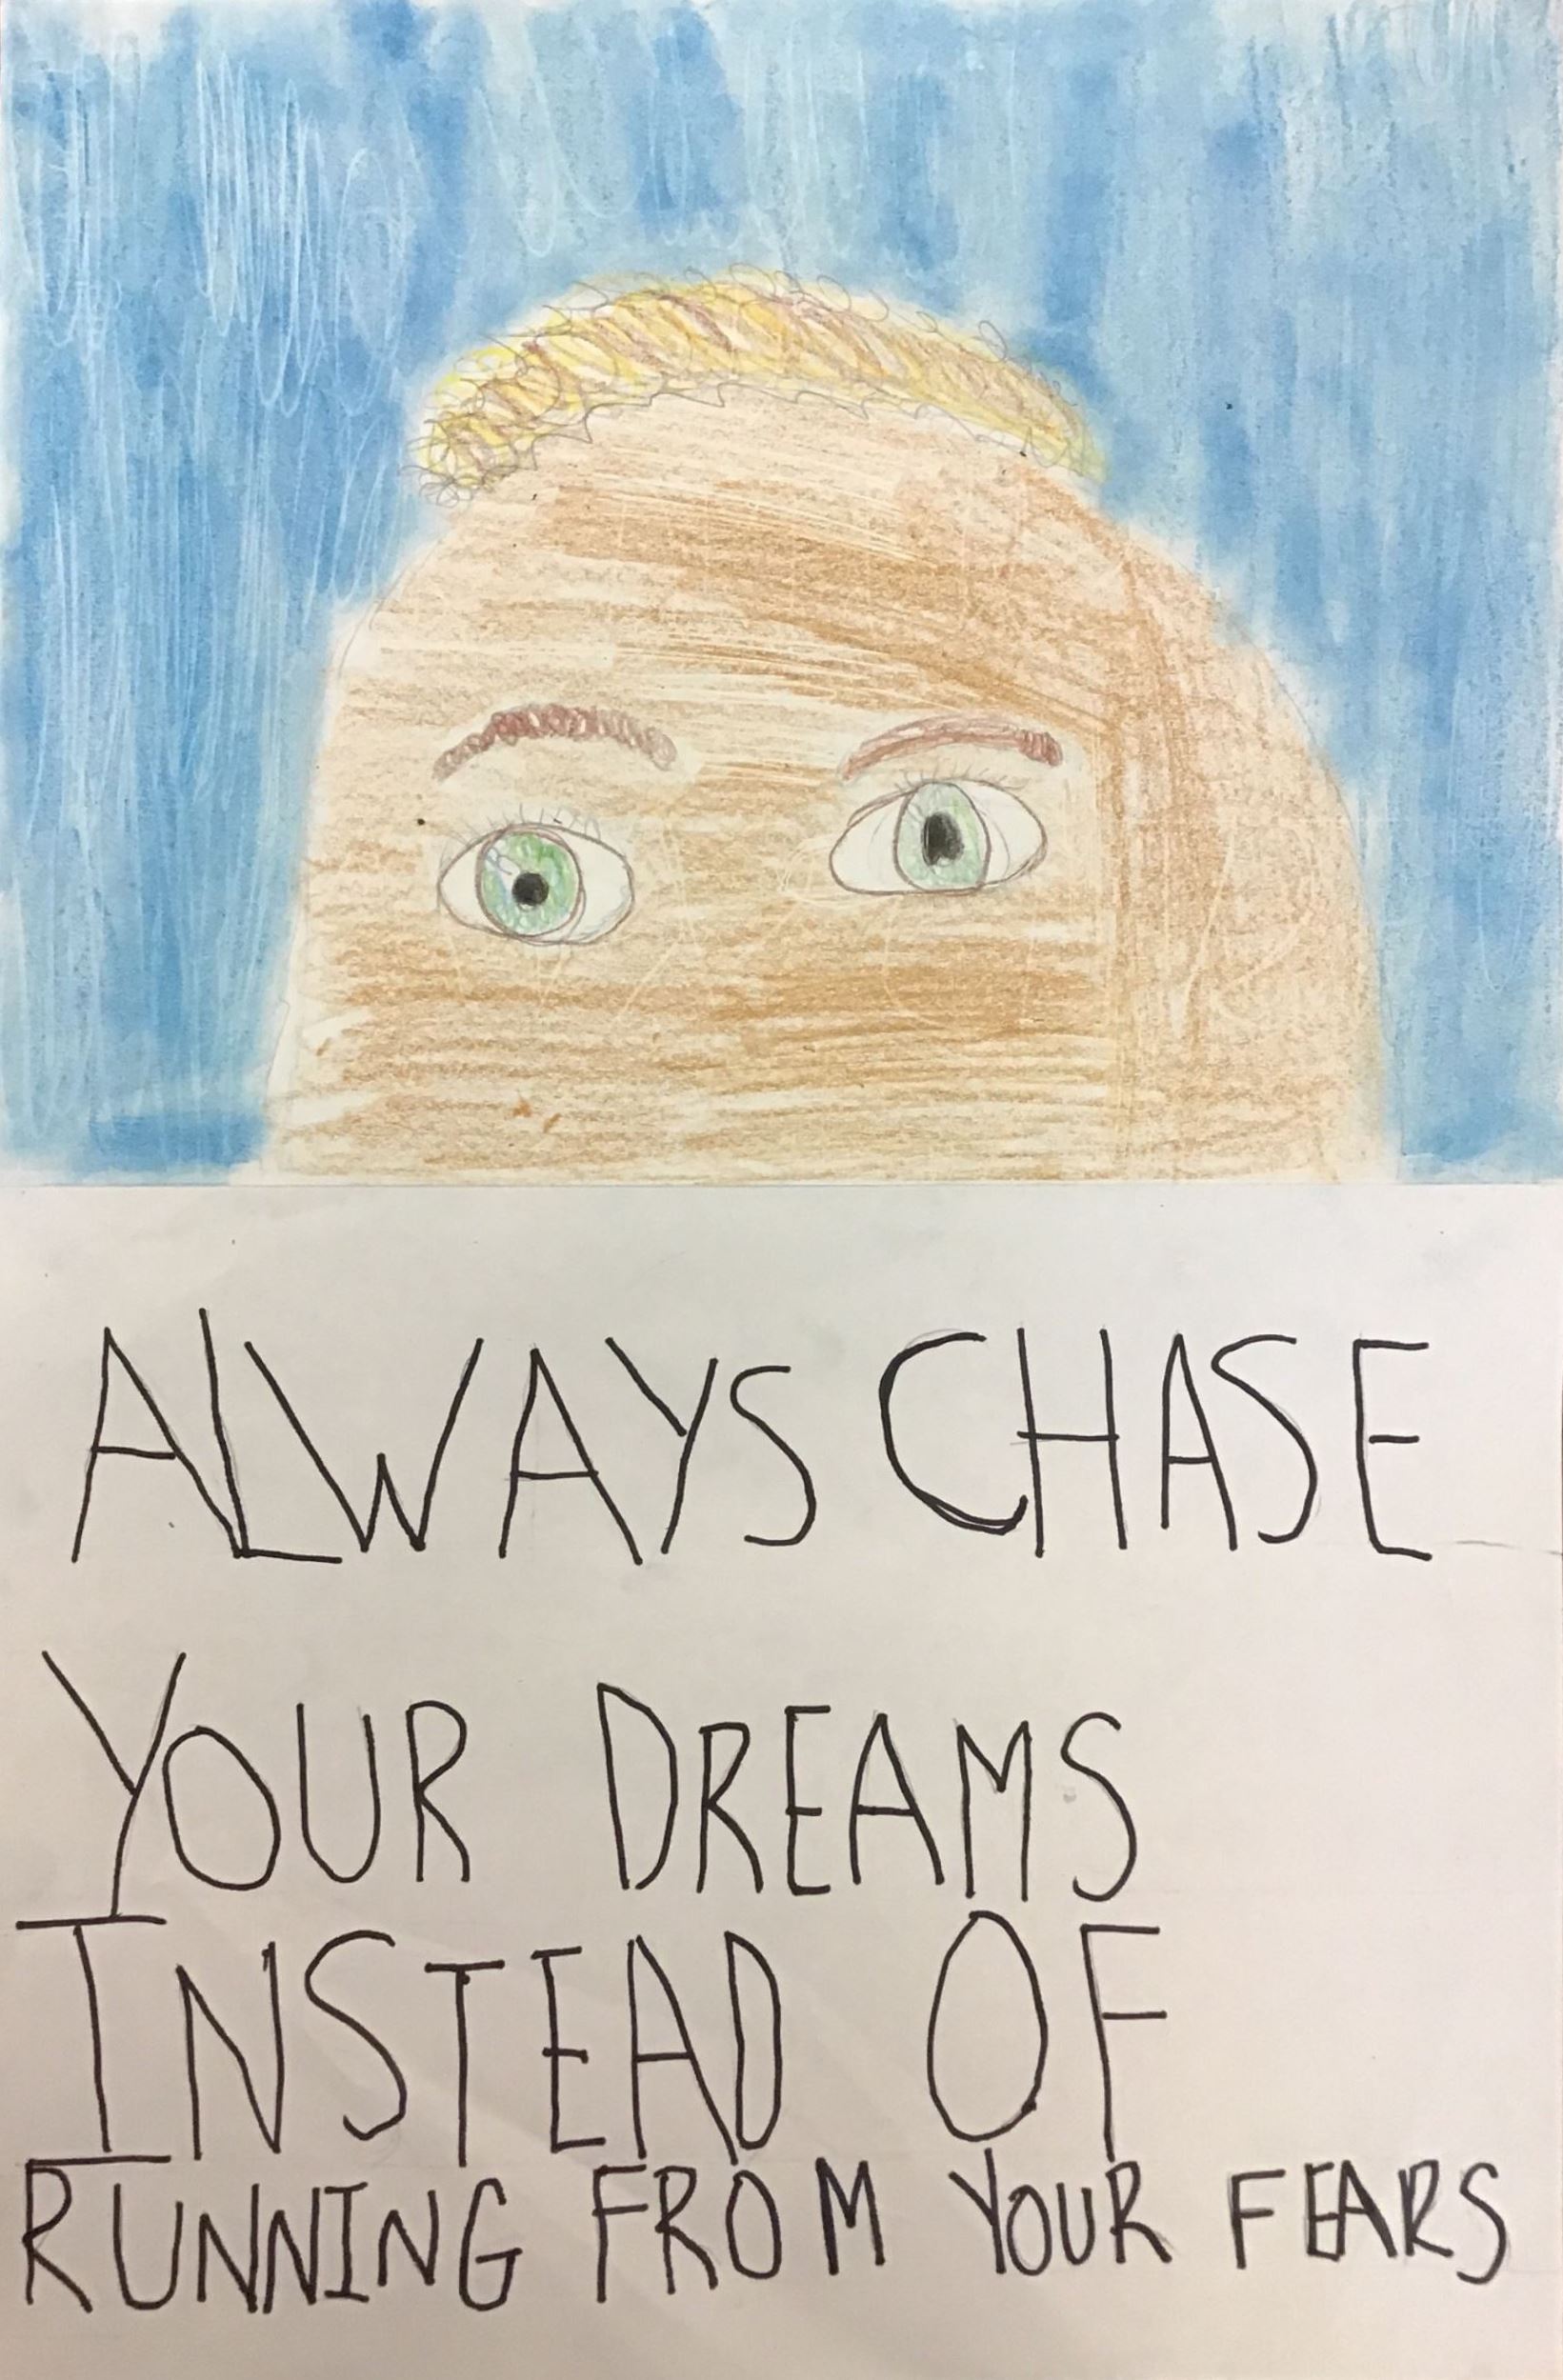 ALWAYS CHASE
YOUR DREAMS
INSTEAD OF
RUNNING FROM YOUR FEARS